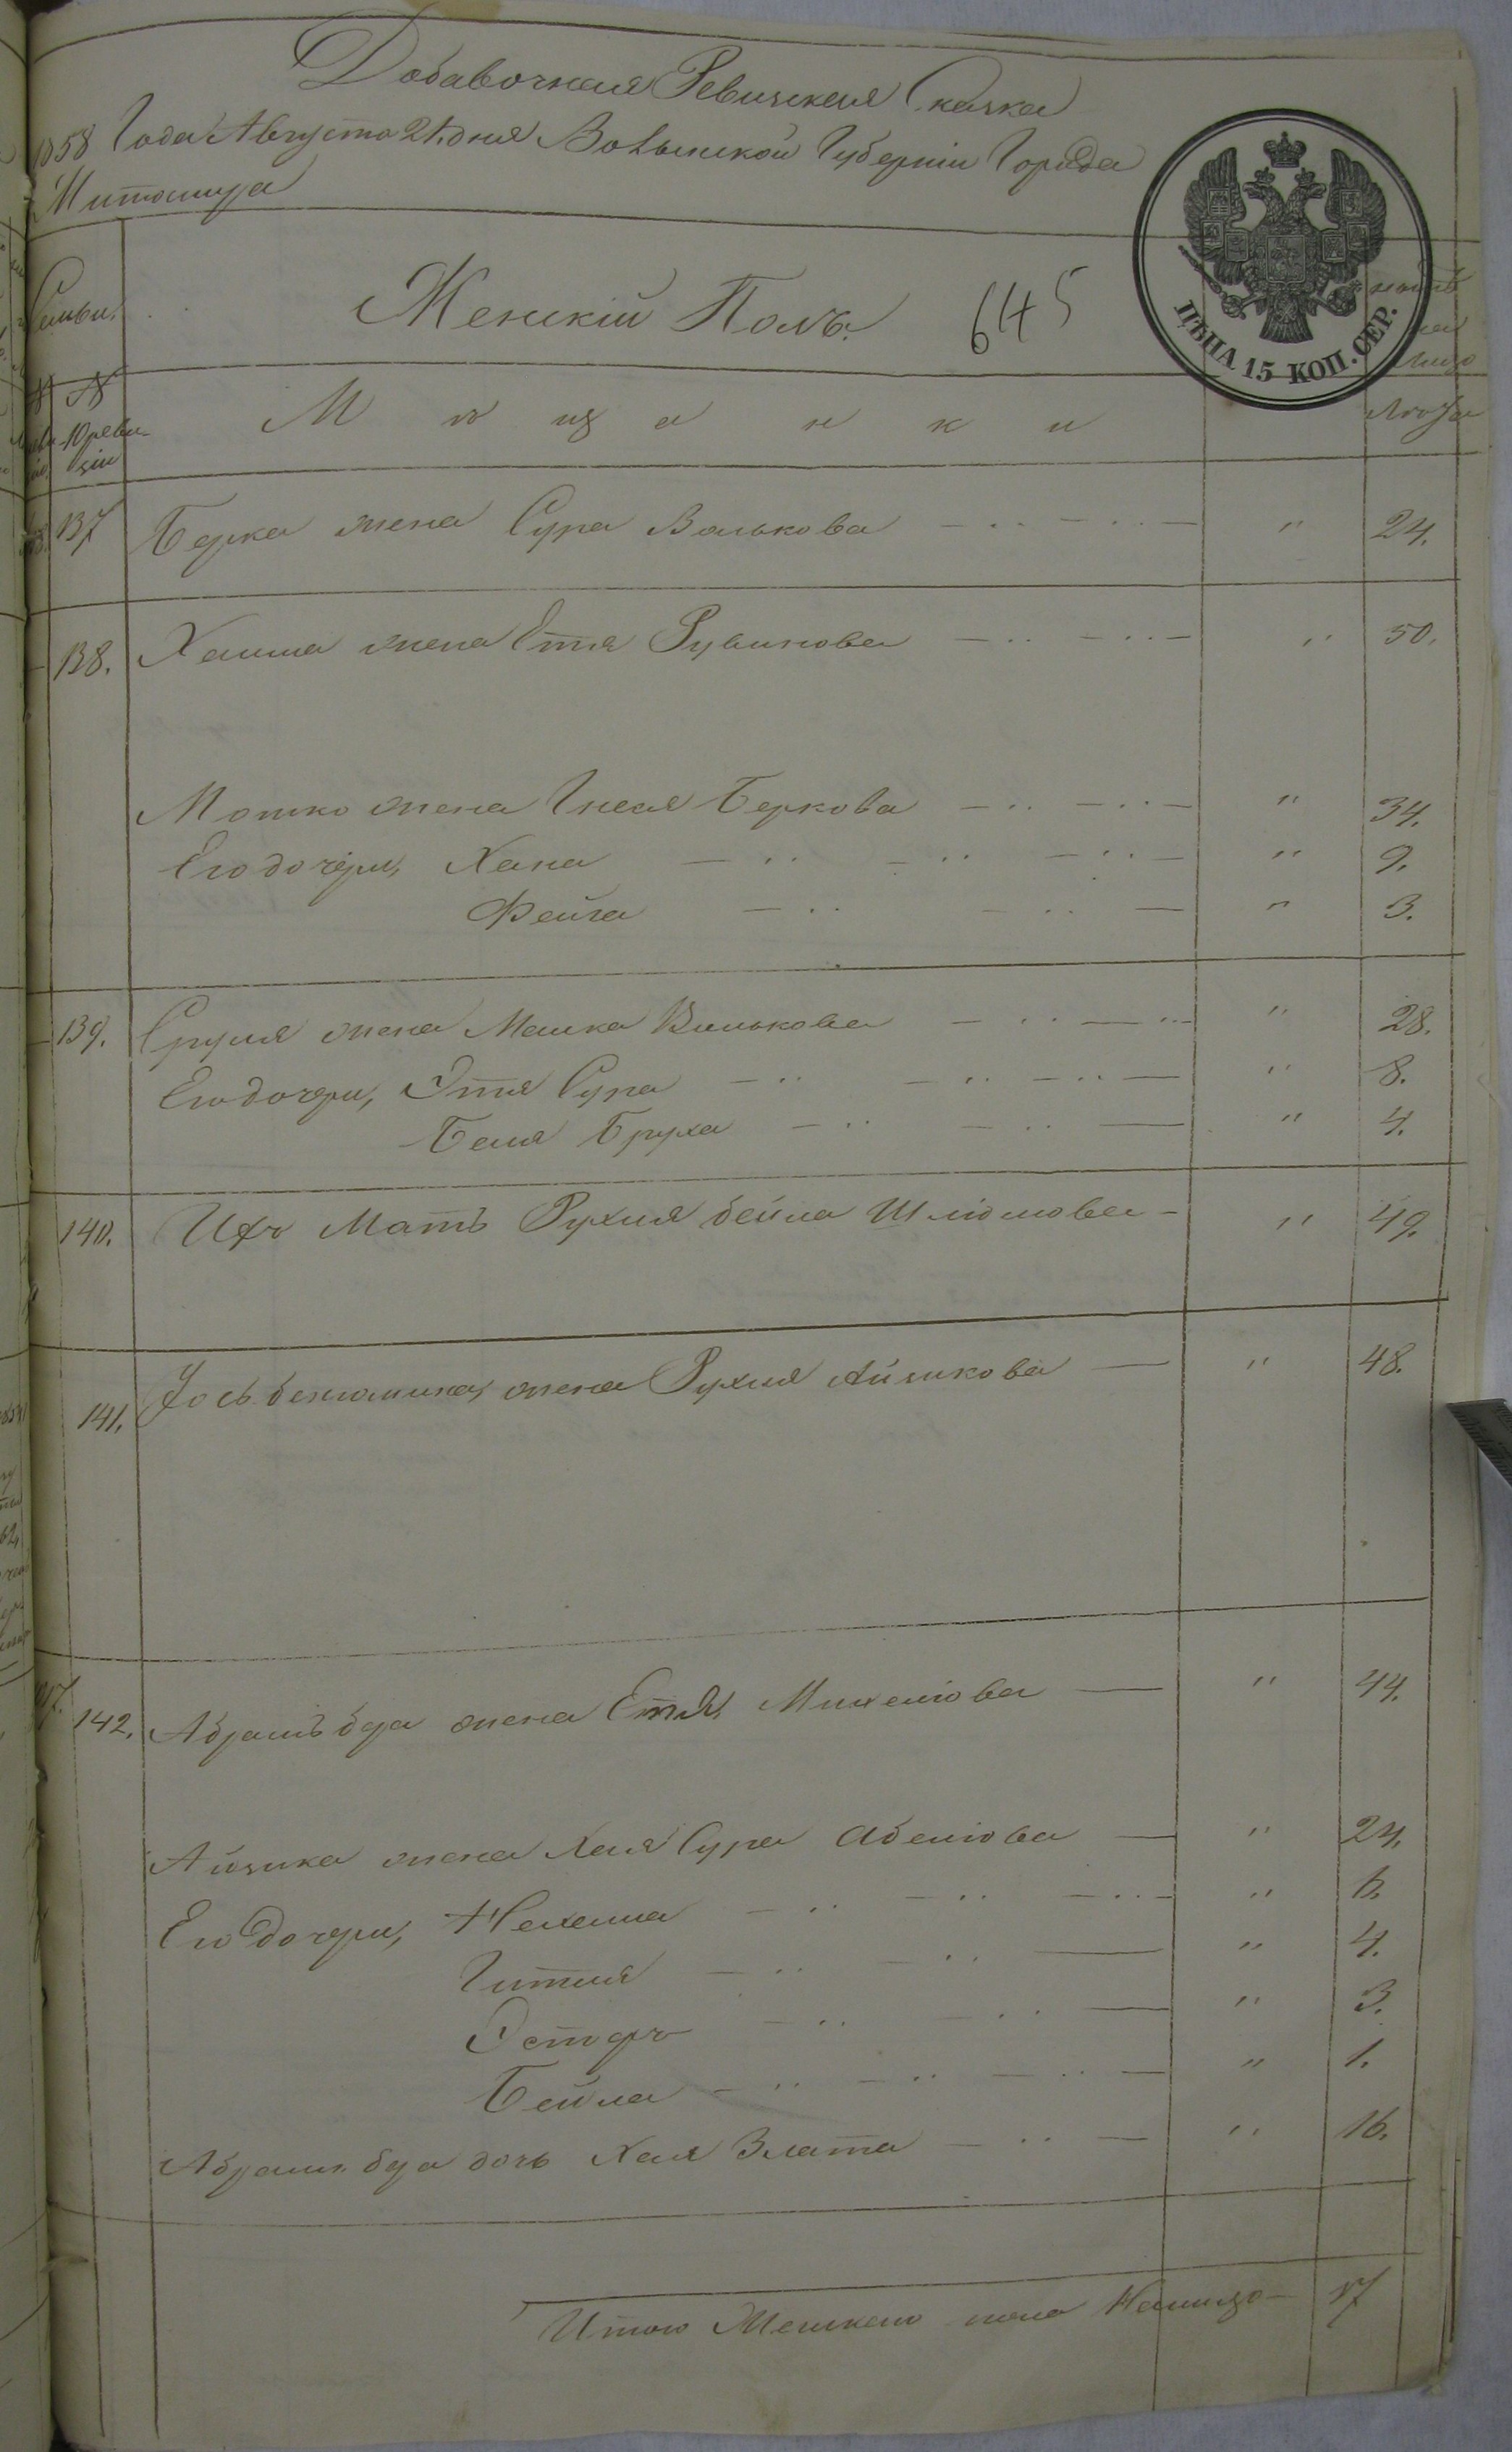 Добавочная Ревизская Сказка
1858 Года Августа 21 дня Волынской Губерніи Города
Житомира
ЦѢНА 15 КОП. СЕР.
Семьи.
Женскій Полъ.
645
на
лицо
№
10 реви-
зіи
М ѣ щ а н к и
Лѣта
137 Берка жена Сура Волькова — ·· — ·· — " 24.
138. Хаима жена Етя Рувинова — ·· — ·· — " 50.
Мотко жена Гнеся Беркова — ·· — ·· — " 34.
Его дочери, Хана — ·· — ·· — ·· — " 9.
Фейга — ·· — ·· — " 3.
139. Сруля жена Малка Волькова — ·· — ·· " 28.
Его дочери, Этя Сура — ·· — ·· — ·· — " 8.
Бася Бруха — ·· — ·· — " 4.
140. Ихъ Мать Рухля бейла Шліомова - " 49.
141. Іось беніомина, жена Рухля Айзикова — " 48.
142. Абрамъ бера жена Етя, Михелова — " 44.
Айзика жена Хая Сура Абелова — " 24.
Его Дочери, Нехама — ·· — ·· — ·· — " 6.
Гитля — ·· — ·· — " 4.
Эстеръ — ·· — ·· — " 3.
Бейла — ·· — ·· — ·· — " 1.
Абрамъ бера дочь Хая Злата — ·· — " 16.
Итого Женскаго пола Налицо — 17